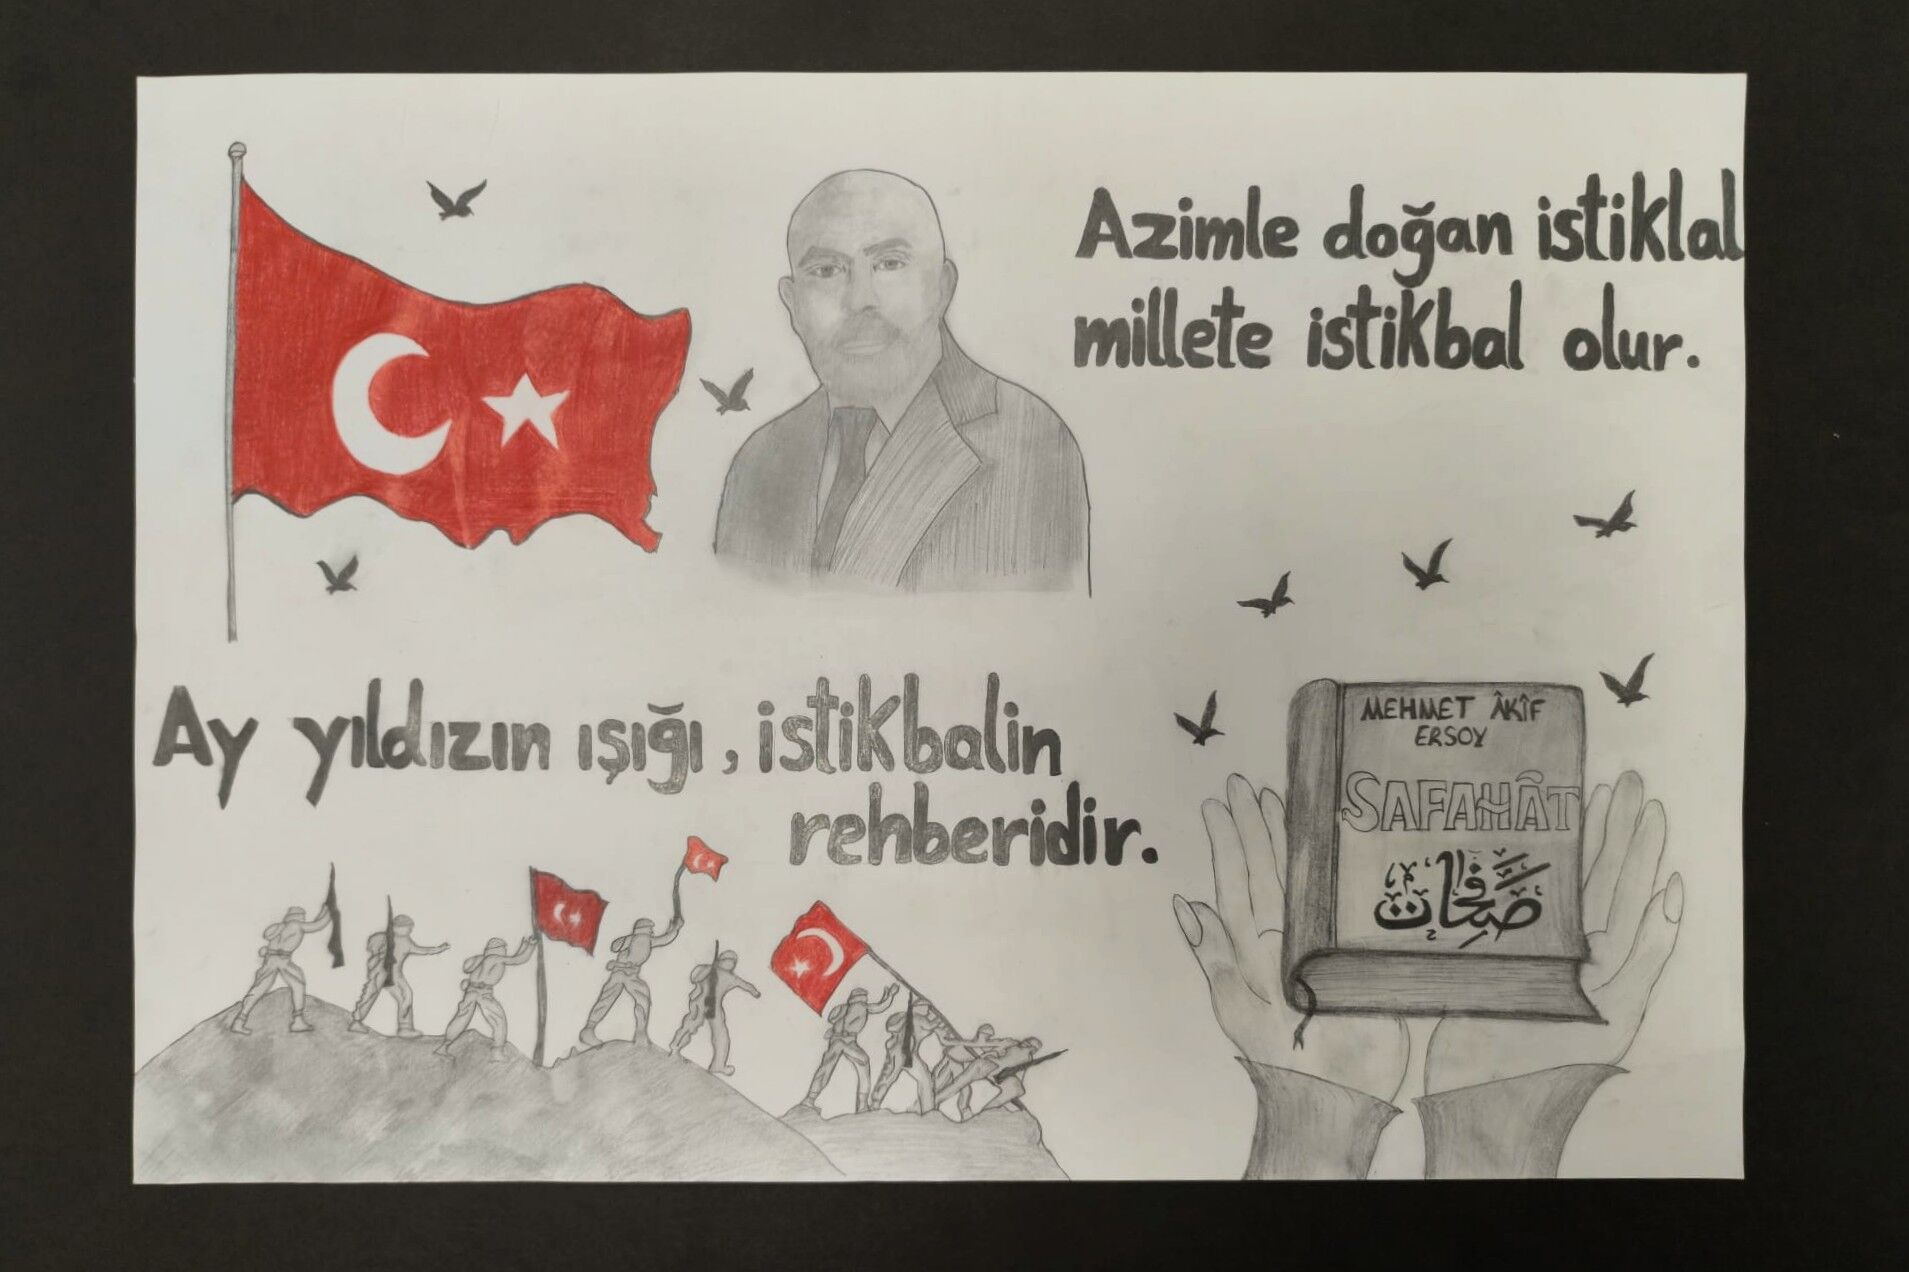 Azimle doğan istiklal
millete istikbal olur.
Ay yıldızın ışığı, istikbalin
rehberidir.
MEHMET ÂKİF
ERSOY
SAFAHÂT
صفحات